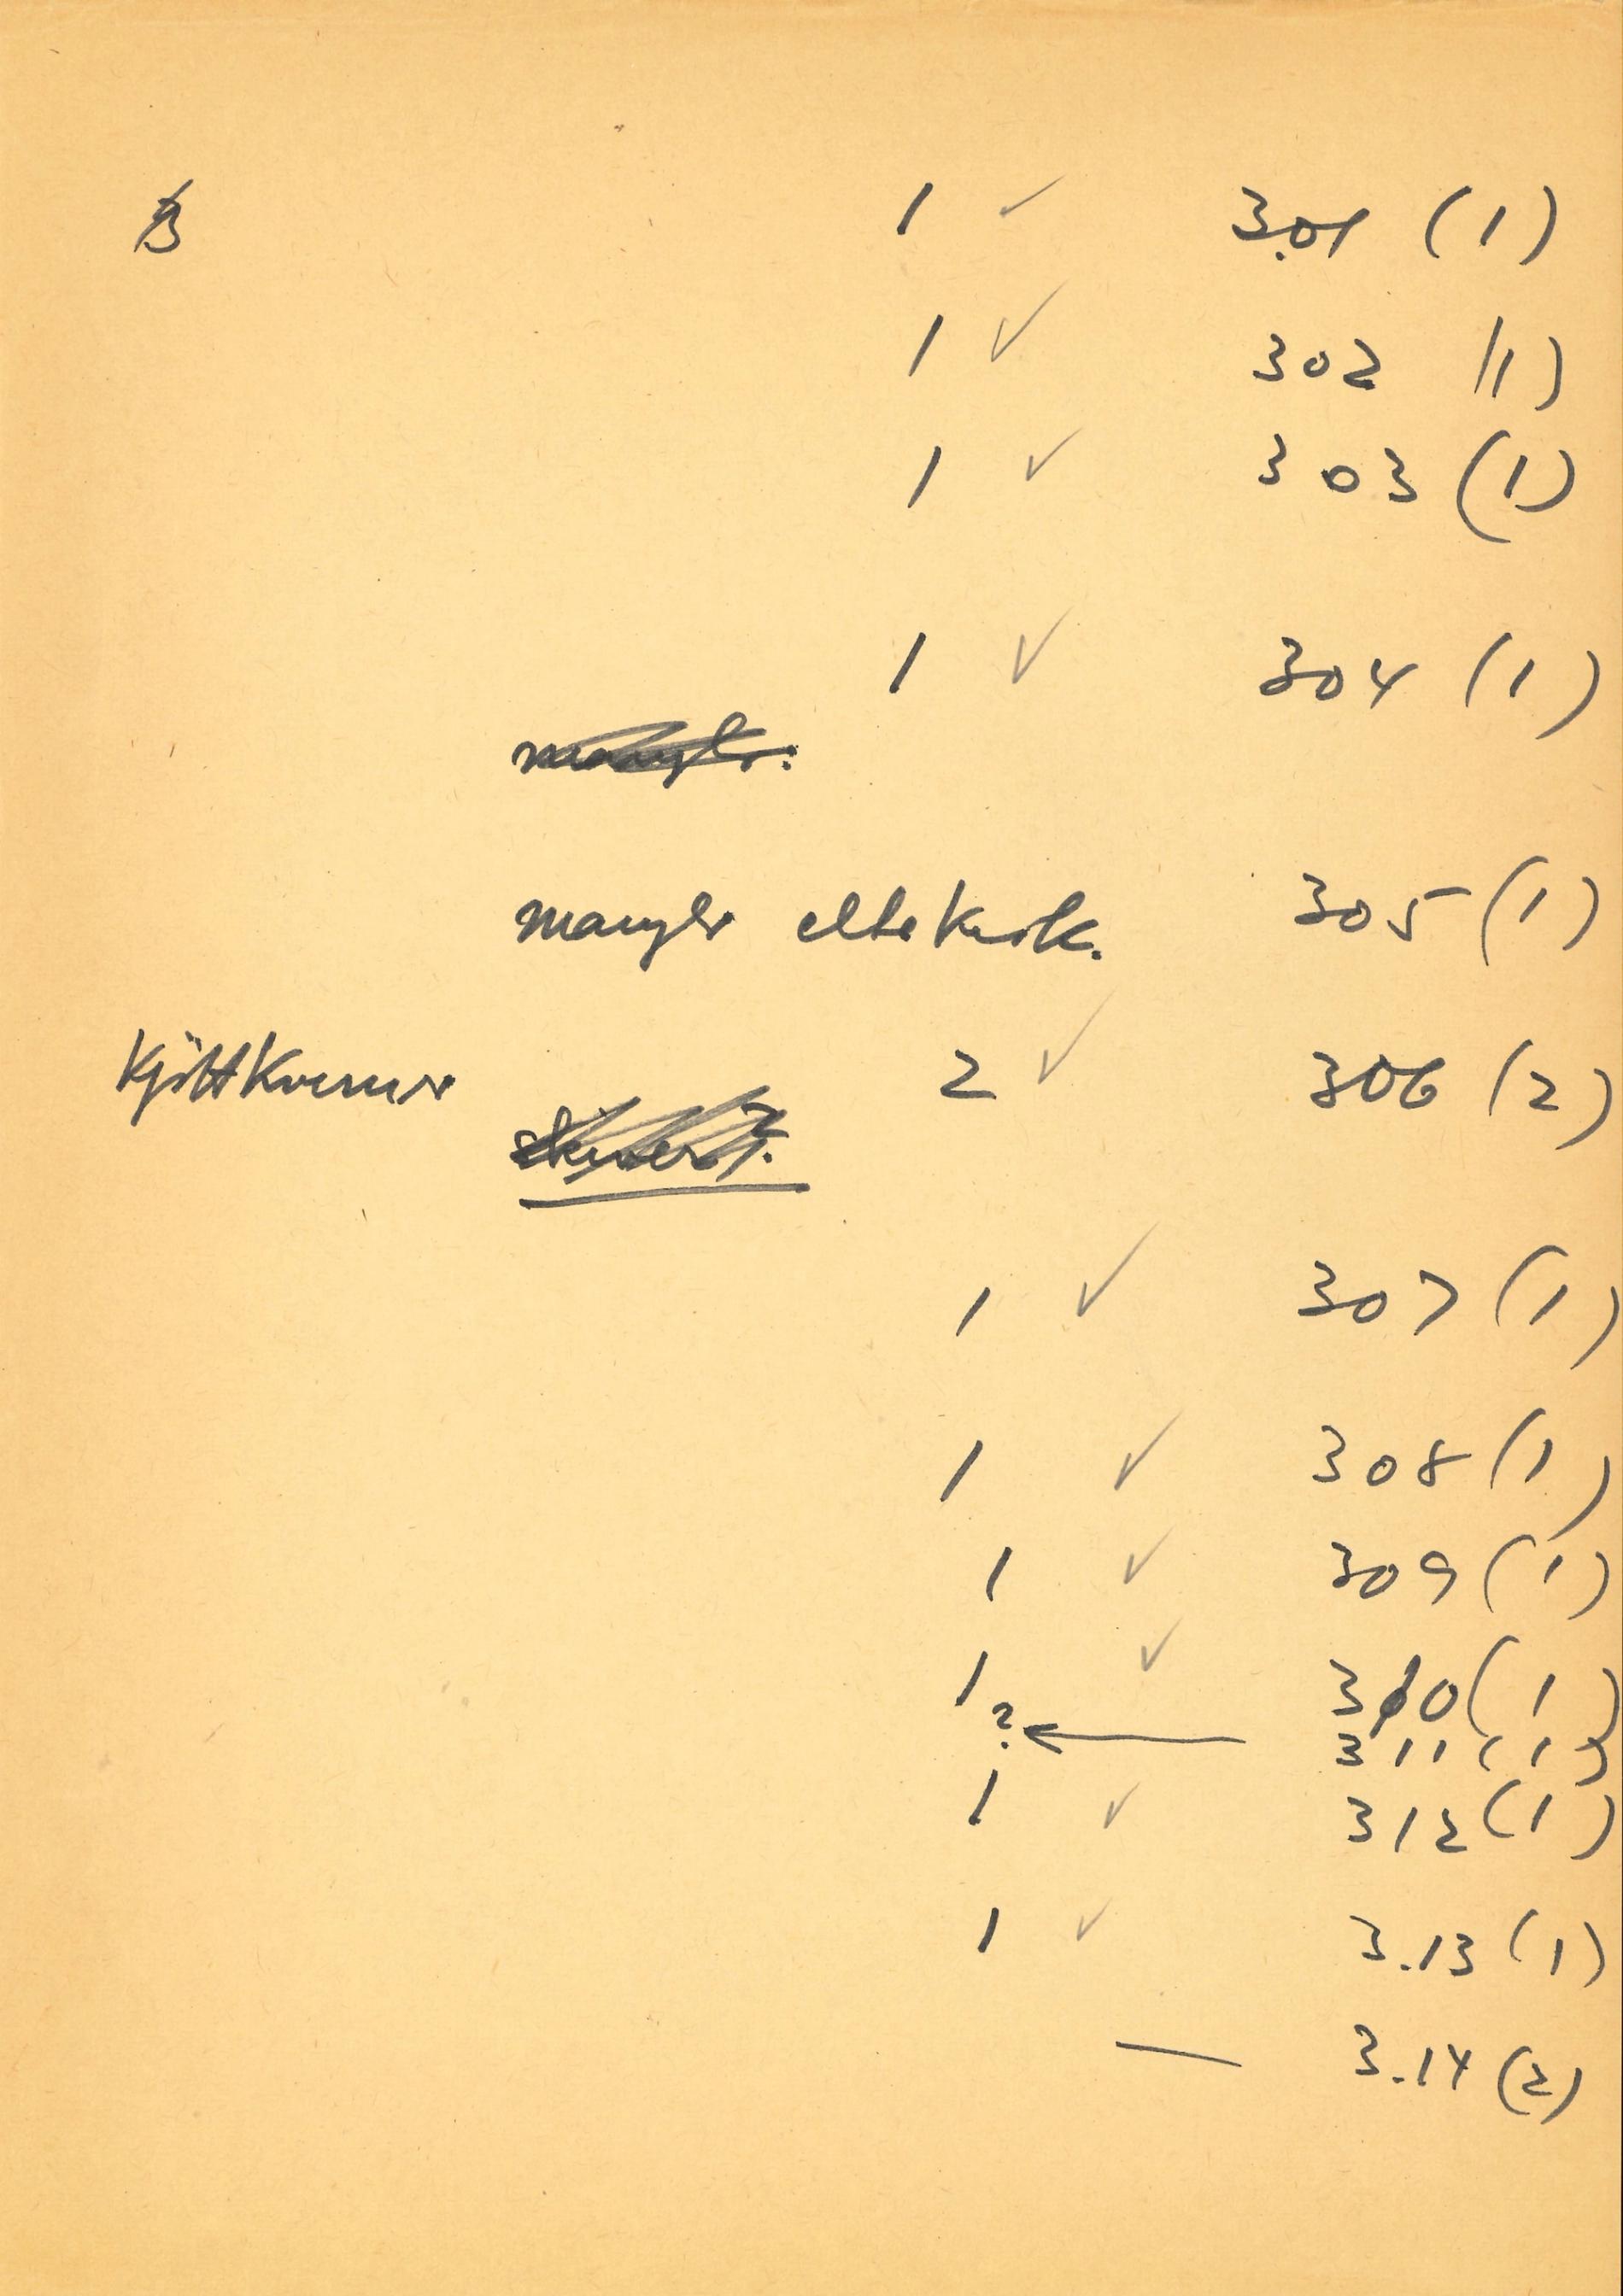 3 1 ✓ 3.01 (1)
1 ✓ 302 (1)
1 ✓ 303 (1)
1 ✓ 304 (1)
mangler.
mangler 305 (1)
Kjöttkverner 2 ✓ 306 (2)
1 ✓ 307 (1)
1 ✓ 308 (1)
1 ✓ 309 (1)
1 ✓ 310 (1)
? ← 311 (1)
1 ✓ 312 (1)
1 ✓ 3.13 (1)
— 3.14 (2)